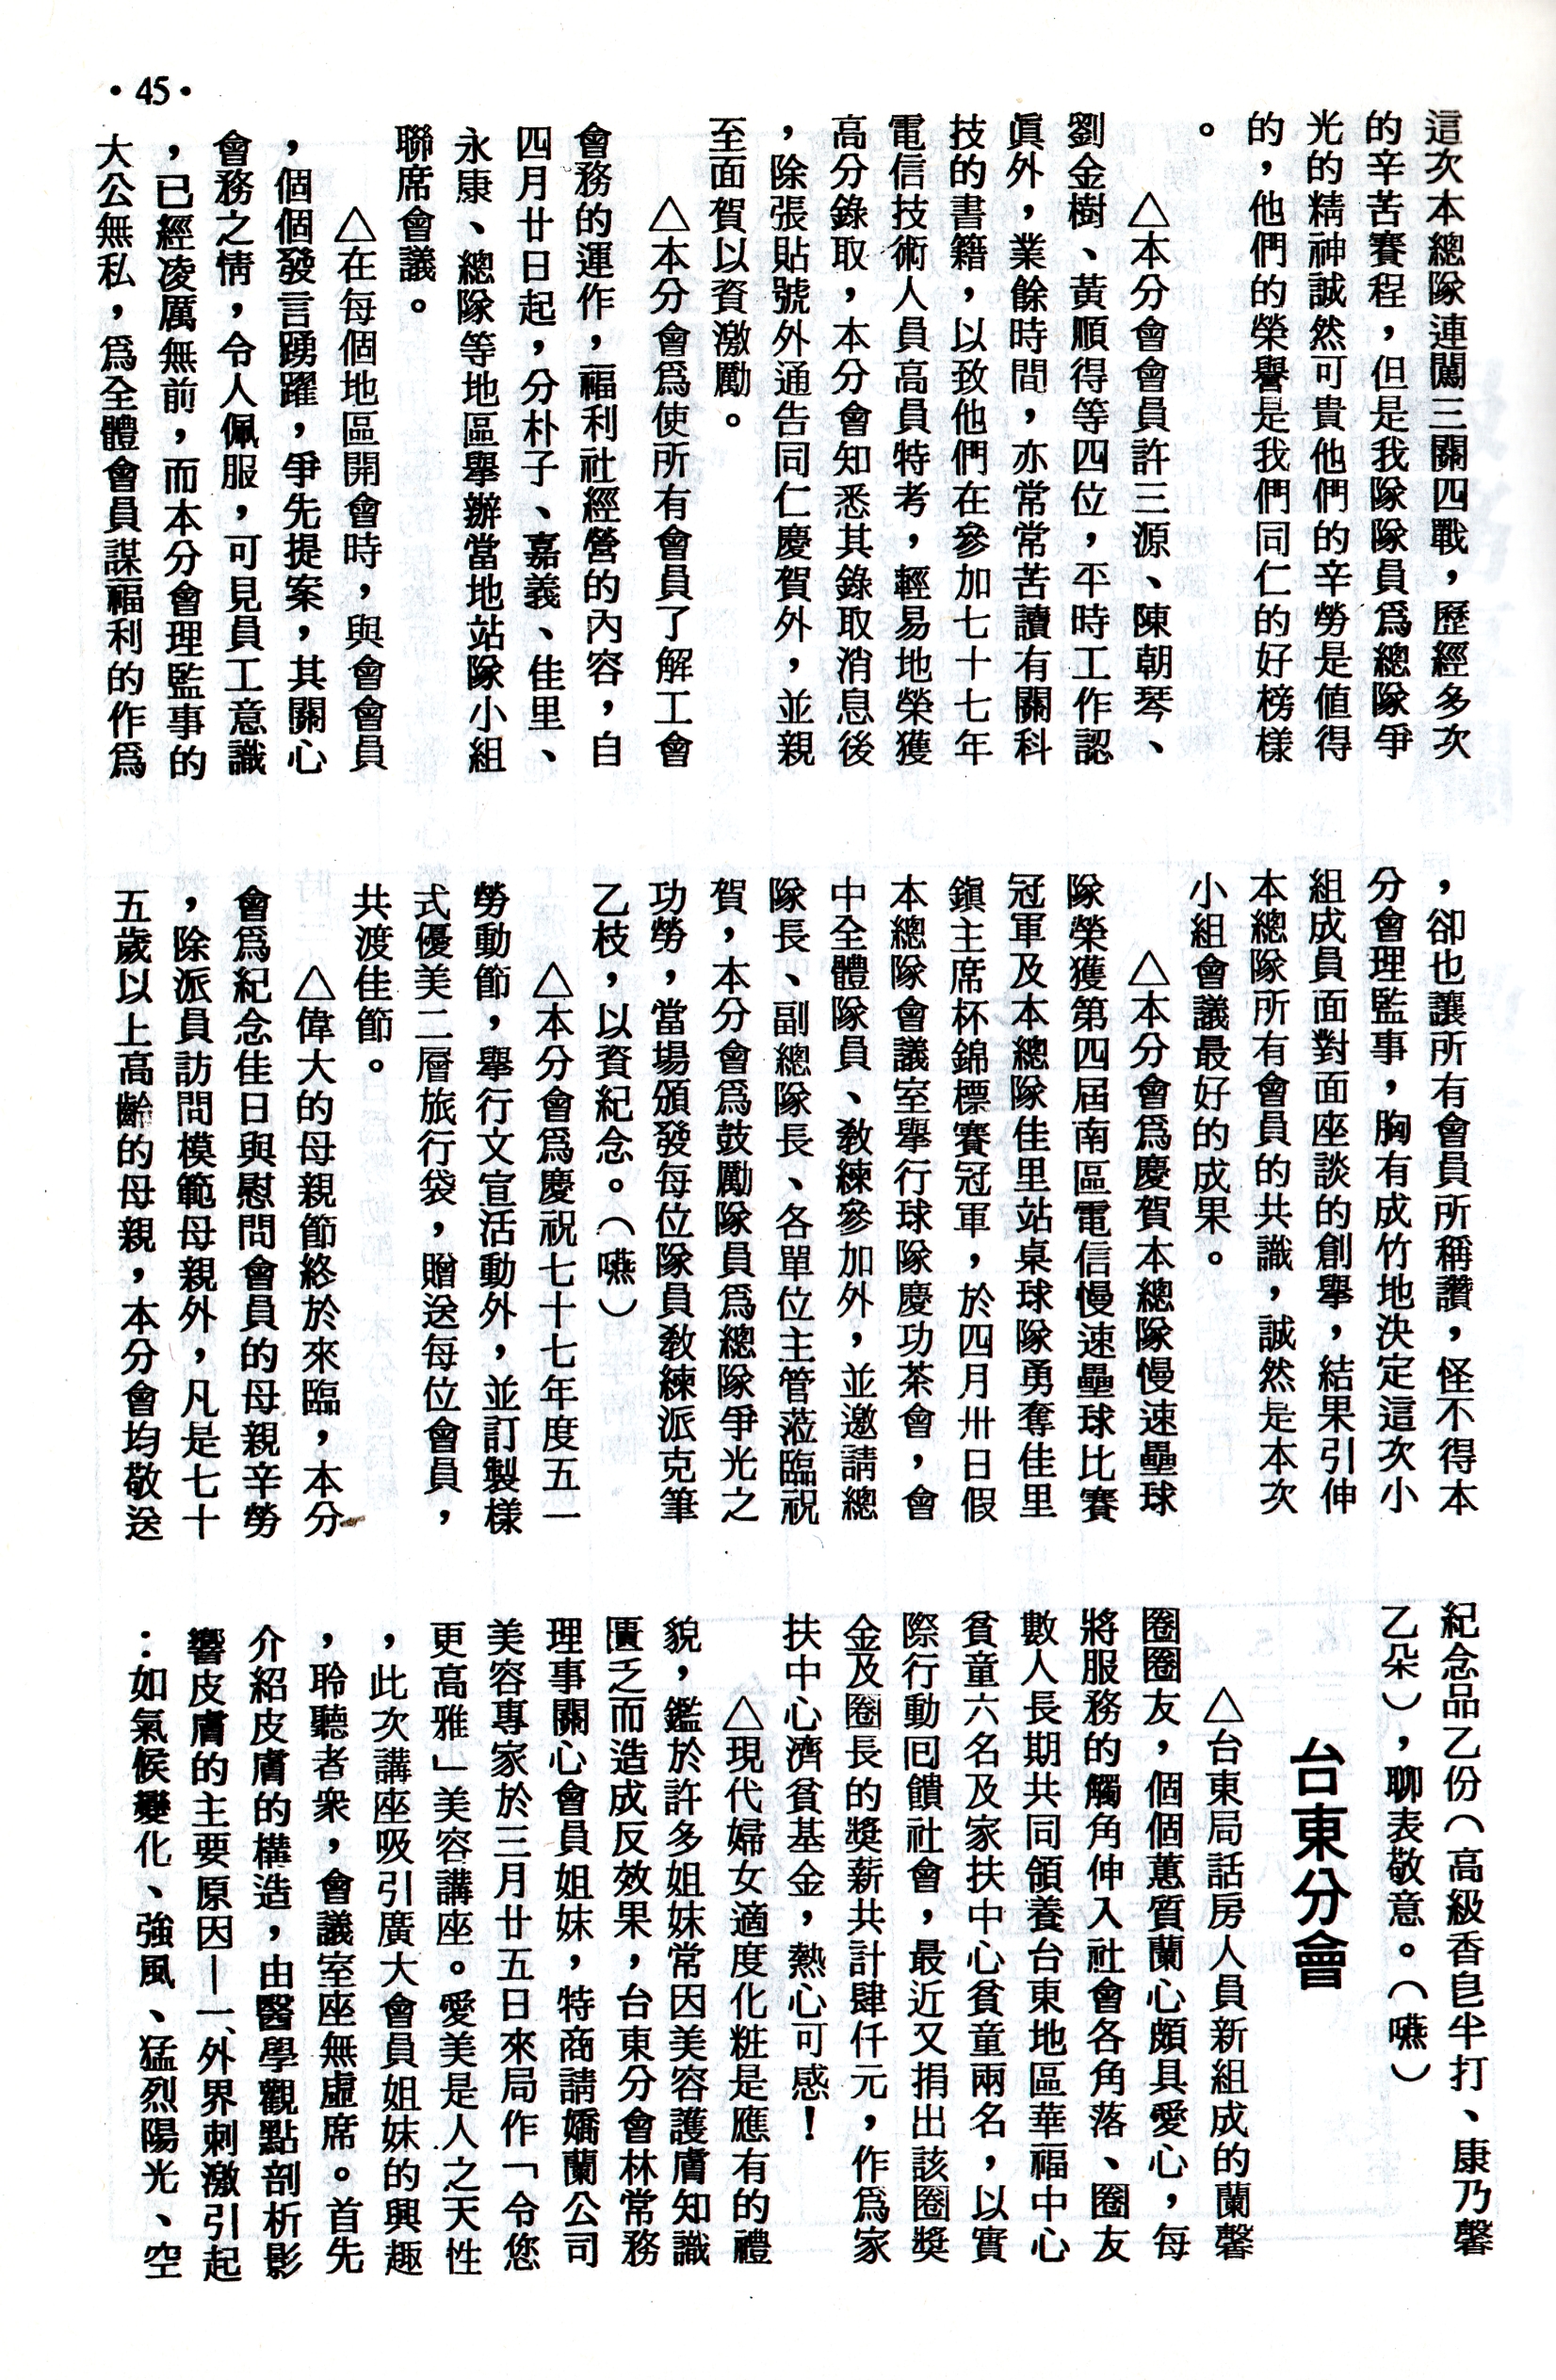 •45•
這次本總隊連闖三關四戰，歷經多次
的辛苦賽程，但是我隊隊員爲總隊爭
光的精神誠然可貴他們的辛勞是值得
的，他們的榮譽是我們同仁的好榜樣
。
△本分會會員許三源、陳朝琴、
劉金樹、黃順得等四位，平時工作認
眞外，業餘時間，亦常常苦讀有關科
技的書籍，以致他們在參加七十七年
電信技術人員高員特考，輕易地榮獲
高分錄取，本分會知悉其錄取消息後
，除張貼號外通告同仁慶賀外，並親
至面賀以資激勵。
△本分會爲使所有會員了解工會
會務的運作，福利社經營的內容，自
四月廿日起，分朴子、嘉義、佳里、
永康、總隊等地區舉辦當地站隊小組
聯席會議。
△在每個地區開會時，與會會員
，個個發言踴躍，爭先提案，其關心
會務之情，令人佩服，可見員工意識
，已經凌厲無前，而本分會理監事的
大公無私，爲全體會員謀福利的作爲
，卻也讓所有會員所稱讚，怪不得本
分會理監事，胸有成竹地決定這次小
組成員面對面座談的創舉，結果引伸
本總隊所有會員的共識，誠然是本次
小組會議最好的成果。
△本分會爲慶賀本總隊慢速壘球
隊榮獲第四屆南區電信慢速壘球比賽
冠軍及本總隊佳里站桌球隊勇奪佳里
鎭主席杯錦標賽冠軍，於四月卅日假
本總隊會議室舉行球隊慶功茶會，會
中全體隊員、教練參加外，並邀請總
隊長、副總隊長、各單位主管蒞臨祝
賀，本分會爲鼓勵隊員爲總隊爭光之
功勞，當場頒發每位隊員教練派克筆
乙枝，以資紀念。（嚥）
△本分會爲慶祝七十七年度五一
勞動節，舉行文宣活動外，並訂製樣
式優美二層旅行袋，贈送每位會員，
共渡佳節。
△偉大的母親節終於來臨，本分
會爲紀念佳日與慰問會員的母親辛勞
，除派員訪問模範母親外，凡是七十
五歲以上高齡的母親，本分會均敬送
紀念品乙份（高級香皀半打、康乃馨
乙朵），聊表敬意。（嚥）
台東分會
△台東局話房人員新組成的蘭馨
圈圈友，個個蕙質蘭心頗具愛心，每
將服務的觸角伸入社會各角落、圈友
數人長期共同領養台東地區華福中心
貧童六名及家扶中心貧童兩名，以實
際行動回饋社會，最近又捐出該圈獎
金及圈長的獎薪共計肆仟元，作爲家
扶中心濟貧基金，熱心可感！
△現代婦女適度化粧是應有的禮
貌，鑑於許多姐妹常因美容護膚知識
匱乏而造成反效果，台東分會林常務
理事關心會員姐妹，特商請嬌蘭公司
美容專家於三月廿五日來局作「令您
更高雅」美容講座。愛美是人之天性
，此次講座吸引廣大會員姐妹的興趣
，聆聽者衆，會議室座無虛席。首先
介紹皮膚的構造，由醫學觀點剖析影
響皮膚的主要原因—一、外界刺激引起
：如氣候變化、強風、猛烈陽光、空